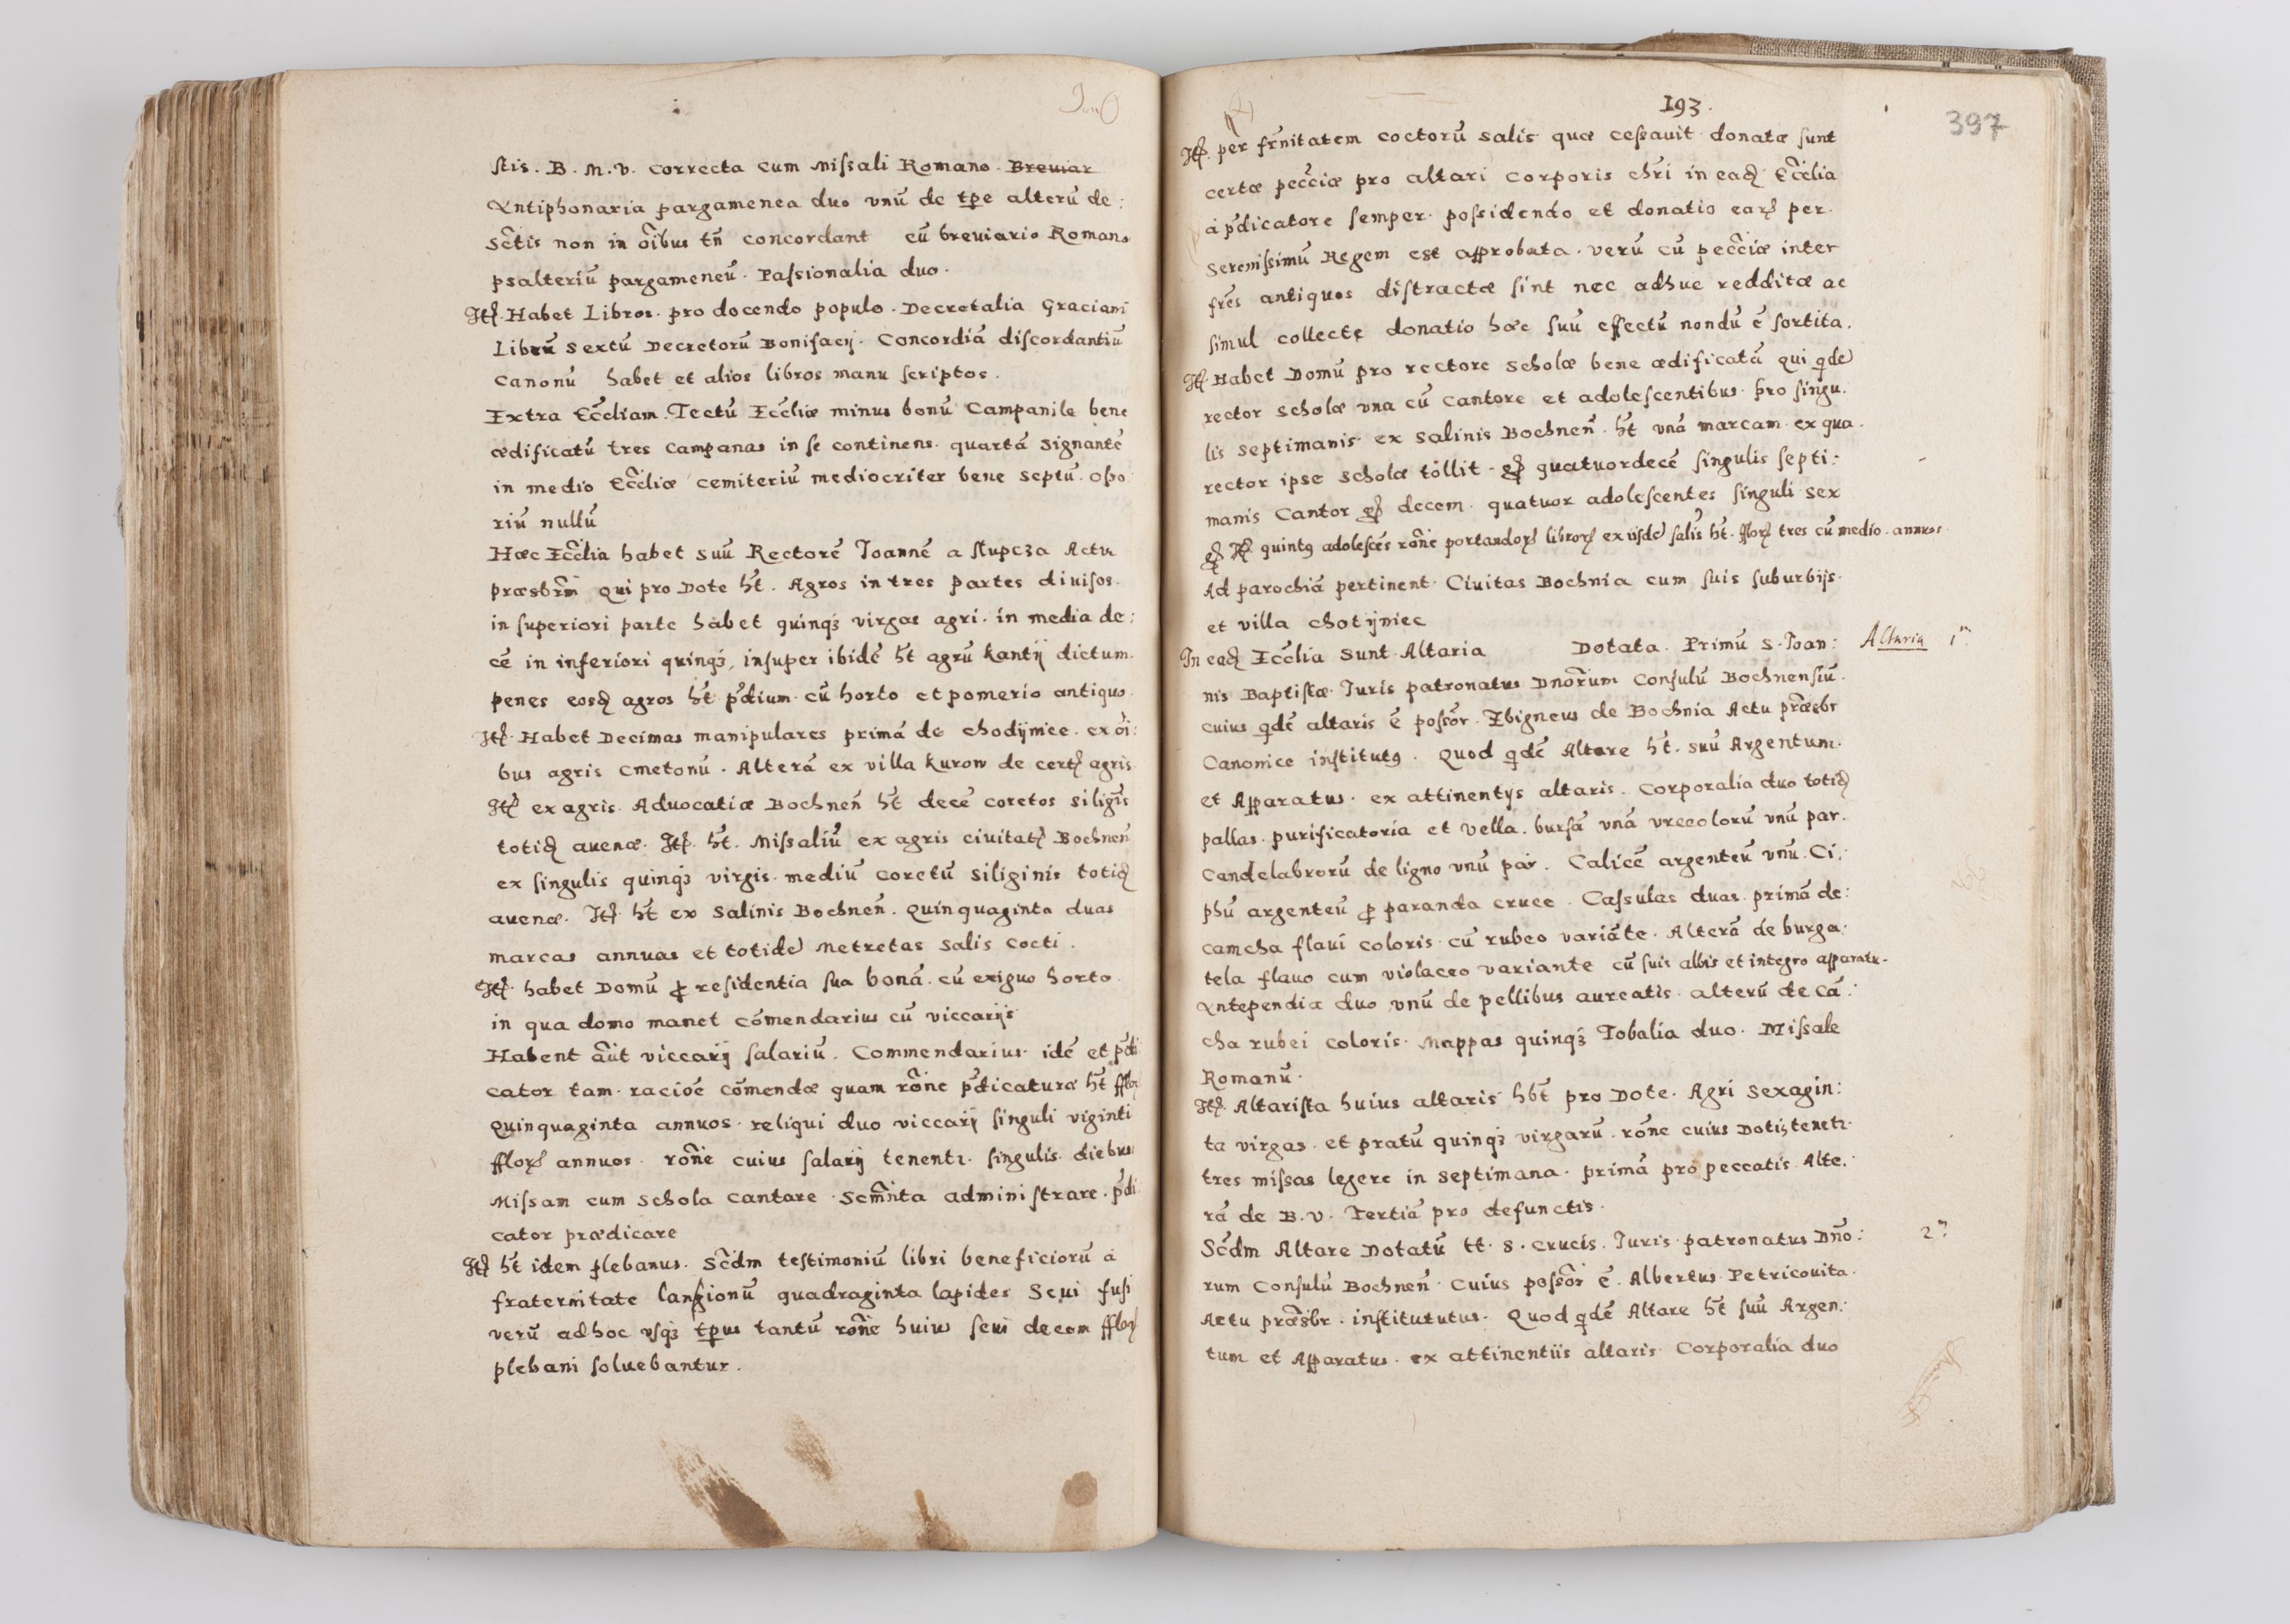 stis . B . M . V . correcta cum Missali Romano . Breuiar
Antiphonaria pargamenea duo vnū de tp̄e alterū de :
Sc̄tis non in oībus tn̄ concordant cū breuiario Romano
psalteriū pargameneū . Passionalia duo .
Itꝫ . Habet Libros . pro docendo populo . Decretalia Graciani
Librū Sextū Decretorū Bonifacij . Concordiā discordantiū
Canonū habet et alios libros manu scriptos .
Extra Eccl̄iam . Tectū Eccl̄iæ minus bonū Campanile bene
ædificatū tres Campanas in se continens . quartā Signantē
in medio Eccl̄iæ cemiteriū mediocriter bene Septū . Oso
riū nullū
Hæc Eccl̄ia habet suū Rectorē Joannē a stupcza Actu
præsbrm̄ qui pro Dote ht̄ . Agros in tres partes diuisos .
in superiori parte habet quinqꝫ virgas agri . in media de :
cē in inferiori quinqꝫ , insuper ibidē ht̄ agrū Kantij dictum .
penes eosdꝫ agros ht̄ p̄dium . cū horto et pomerio antiquo
Itꝫ . Habet Decimas manipulares primā de chodijmice . ex oī :
bus agris cmetonū . Alterā ex villa Kurow de certꝫ agris
Itꝫ ex agris Aduocatiæ Bochnen̄ ht̄ decē coretos siligīs
totidꝫ auenæ . Itꝫ . ht̄ . Missaliū ex agris ciuitatꝫ Bochnen̄
ex singulis quinqꝫ virgis . mediū coretū Siliginis totidꝫ
auenæ . Itꝫ ht̄ ex Salinis Bochnen̄ . Quinquaginta duas
marcas annuas et totidē Metretas Salis cocti .
Itꝫ . habet Domū ꝓ residentia sua bonā . cū exiguo horto
in qua domo manet cōmendarius cū viccarijs
Habent aūt viccarij salariū . Commendarius . idē et p̄di
cator tam . racioē cōmendæ quam rōne p̄dicaturæ ht̄ fflor
Quinquaginta annuos . reliqui duo viccarij singuli viginti
fflorꝫ annuos . rōne cuius salarij tenentr . singulis diebus
Missam cum Schola cantare . Scm̄nta administrare . p̄di
cator prædicare
Itꝫ ht̄ idem plebanus . Scdm̄ testimoniū libri beneficiorū á
fraternitate lanionū quadraginta lapides Seui fusi
verū adhoc vsqꝫ tp̄us tantū rōne huius seui decem fflorꝫ
plebani soluebantur .
193 .
397
Itꝫ . per frn̄itatem coctorū salis quæ cessauit . donatæ sunt
certæ peccīæ pro altari Corporis chr̄i in eadꝫ Eccl̄ia
á p̄dicatore semper . possidendo et donatio earꝫ per .
Serenissimū Regem est approbata . verū cū peccīæ inter
fr̄es antiquos distractæ sint nec adhuc redditæ ac
simul collectę donatio hæc suū effectū nondū ē sortita .
Itꝫ . Habet Domū pro rectore Scholæ bene ædificatā qui qdē
rector scholæ vna cū cantore et adolescentibus . pro singu .
lis septimanis . ex Salinis Bochnen̄ . ht̄ vnā marcam . ex qua .
rector ipse scholæ tollit . gꝫ quatuordecē singulis septi :
manis Cantor gꝫ decem . quatuor adolescentes singuli sex
gꝫ Itꝫ . quintꝯ adolescēs rōne portandorꝫ librorꝫ ex ijsdē salīs ht̄ . fflorꝫ tres cū medio . annuos .
Ad parochiā pertinent . Ciuitas Bochnia cum suis suburbijs .
et villa chotijmiec
In eadꝫ Eccl̄ia sunt Altaria Dotata . Primū S . Joan :
Altaria 1ᵐ .
nis Baptistæ . Juris patronatus Dnōrum Consulū Bochnensiū .
cuius qdē altaris ē possōr . Zbigneus de Bochnia Actu præsbr
Canonice institutꝯ . Quod qdē Altare ht̄ . suū Argentum .
et Apparatus . ex attinentijs altaris . Corporalia duo totidꝫ
pallas . purificatoria et vella . bursā vnā vrceolorū vnū par .
Candelabrorū de ligno vnū par . Calicē argenteū vnū . Ci :
phū argenteū ꝓ paranda cruce . Cassulas duas . primā de :
camcha flaui coloris . cū rubeo variāte . Alterā de burga :
tela flauo cum violaceo variante cū suis albis et integro apparatu .
Antependia duo vnū de pellibus aureatis . alterū de Cā :
cha rubei coloris . Mappas quinqꝫ Tobalia duo . Missale
Romanū .
Itꝫ . Altarista huius altaris hb̄t pro Dote . Agri Sexagin :
ta virgas . et pratū quinqꝫ virgarū . rōne cuius Dotis tenetr .
tres missas legere in septimana . primā pro peccatis . Alte :
rā de B . V . Tertiā pro defunctis .
Scdm̄ Altare Dotatū tt . S . Crucis . Juris patronatus Dnō :
2ᵐ
rum Consulū Bochnen̄ . Cuius possōr ē . Albertus Petricouita .
Actu præsbr . institututus . Quod qdē Altare ht̄ suū Argen :
tum et Apparatus . ex attinentiis altaris Corporalia duo